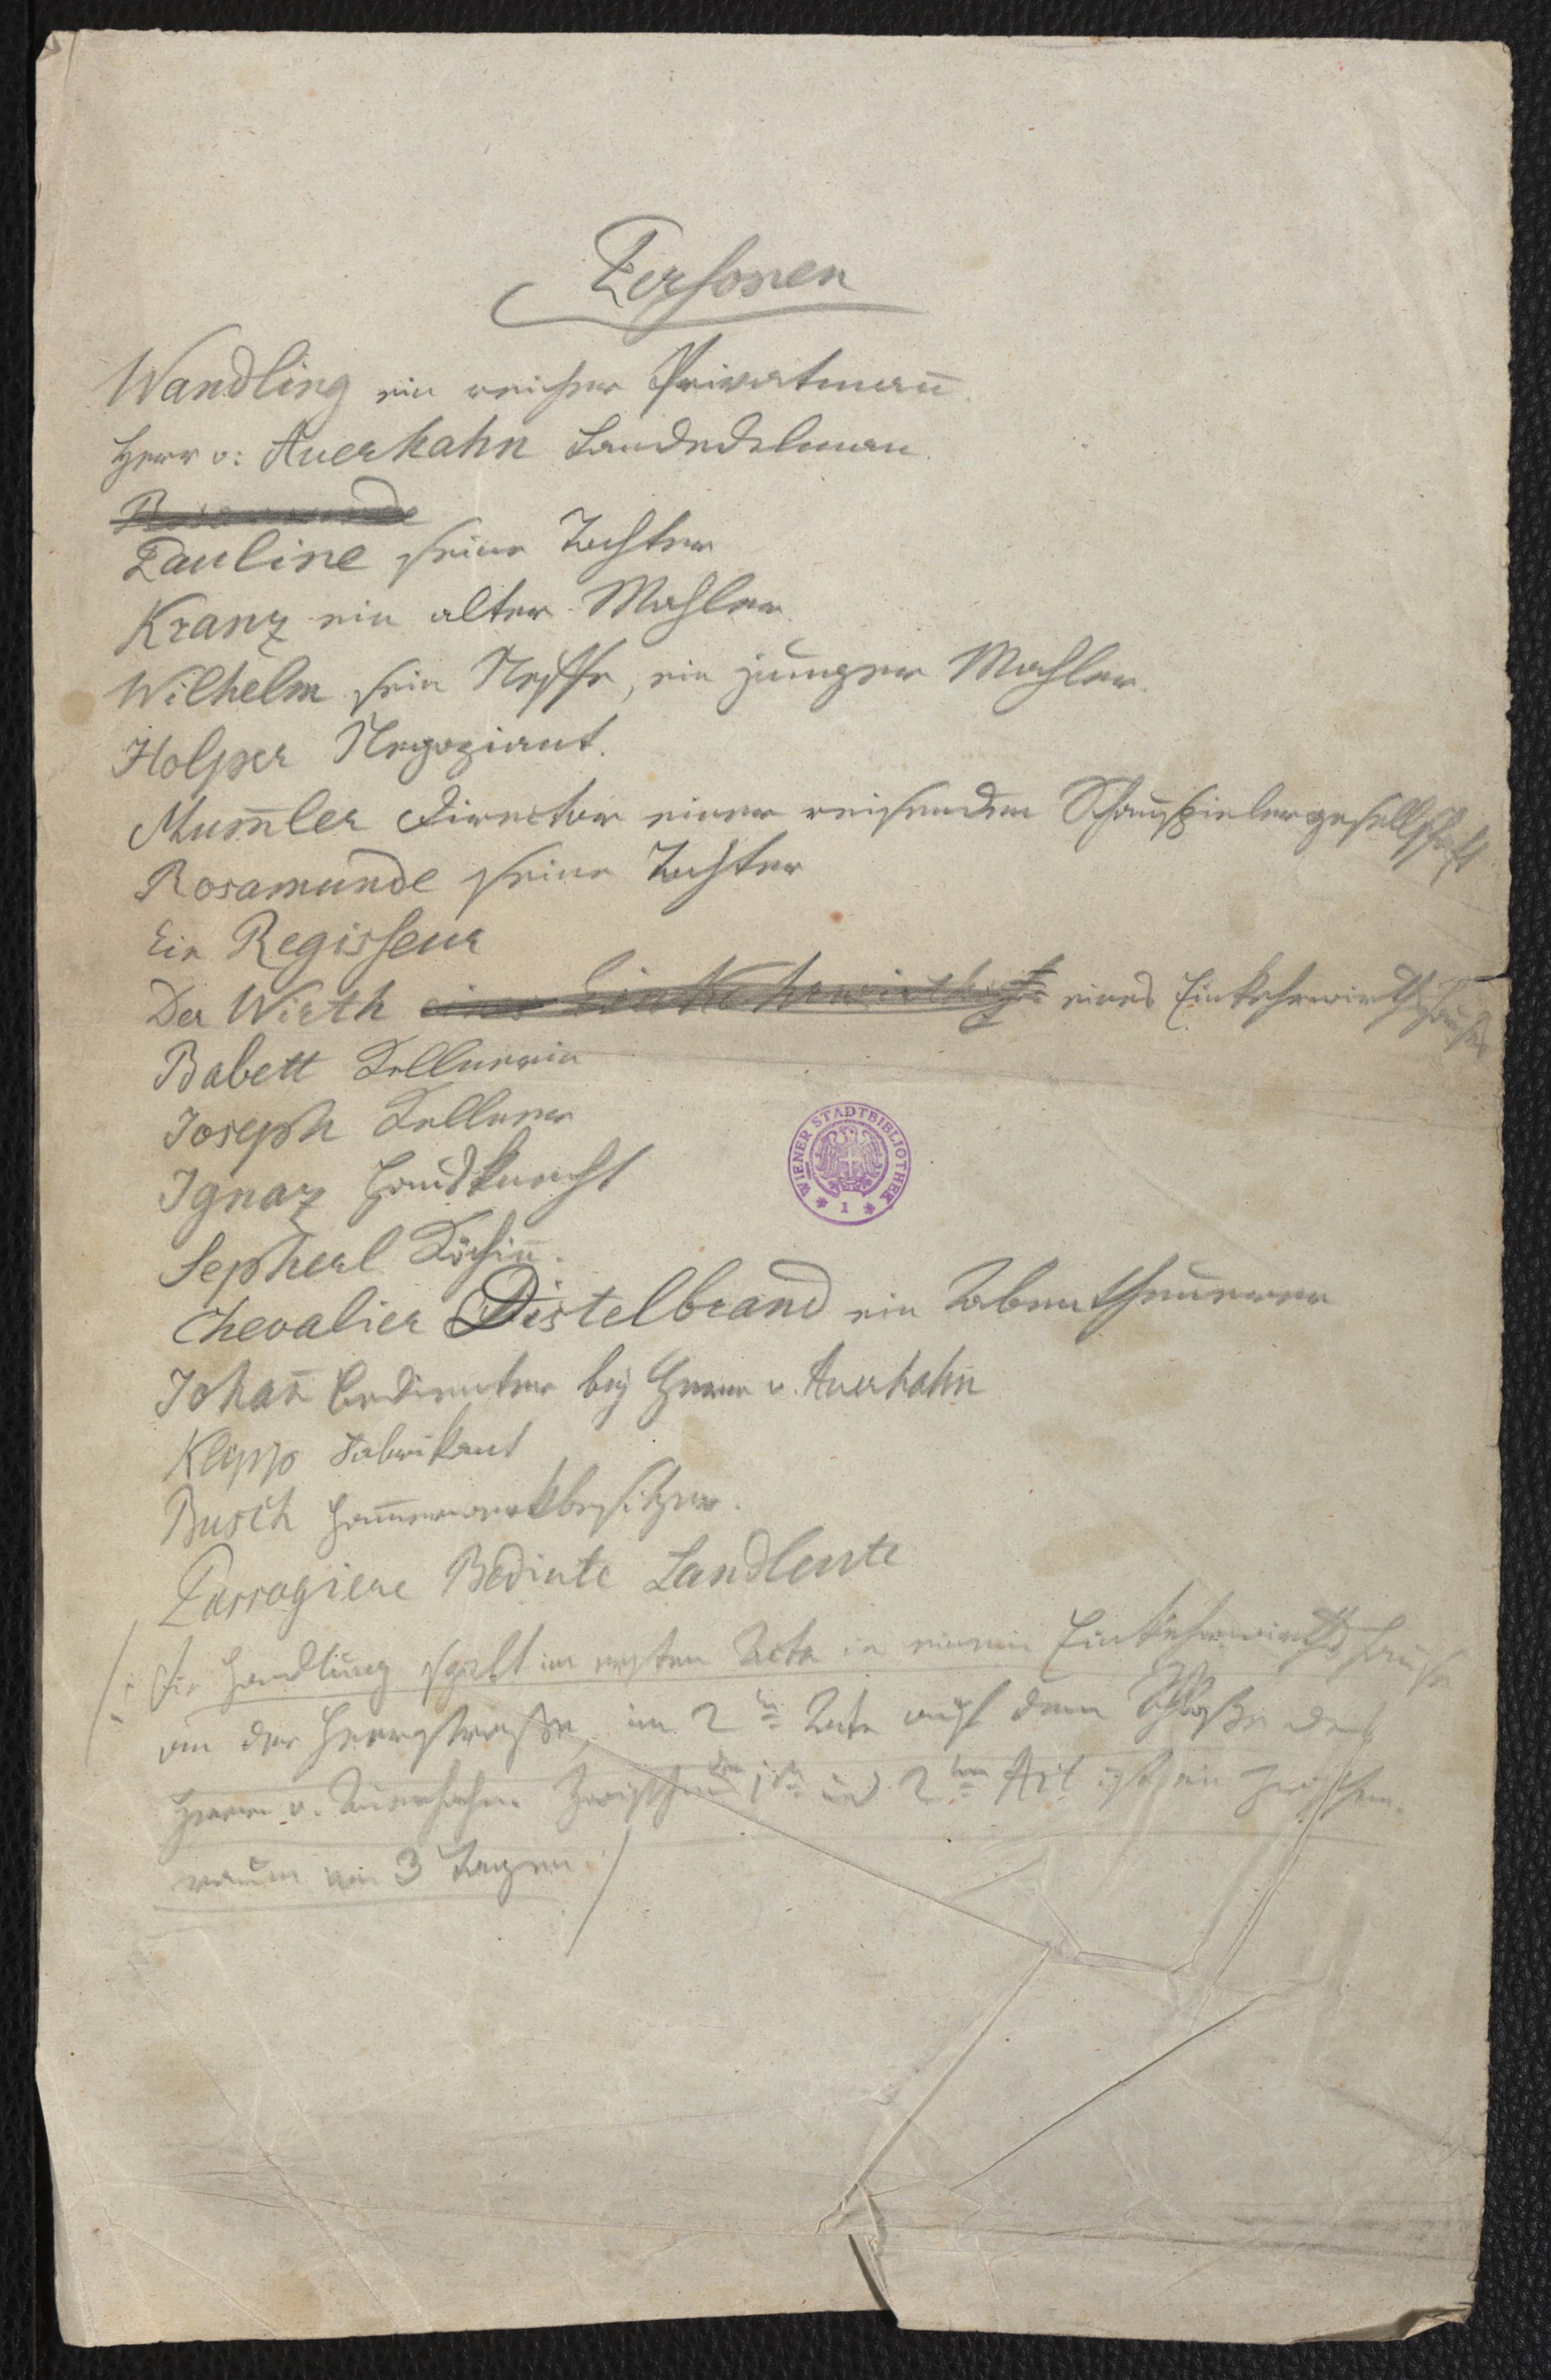 Personen
Wandling ein reicher Privatmañ.
Herr v: Auerhahn Landedelmann.
Rosamunde
Pauline seine Tochter
Kranz ein alter Mahler.
Wilhelm sein Neffe, ein junger Mahler.
Holper Negoziant.
Mum̄ler Director einer reisenden Schauspielergesellschaft
Rosamunde seine Tochter
Ein Regisseur
Der Wirth eines Einkehrwirths eines Einkehrwirthshauses
Babett Kellnerin
Joseph Kellner
Ignaz Hausknecht
Sepherl Köchiñ.
Chevalier Distelbrand ein Abentheuerer
Johañ Bedienter bey Herrn v. Auerhahn
Klipp Fabrikant
Busch Ham̄erwerkbesitzer.
Passagiere Bediente Landleute
/: Die Handlung spielt im ersten Acte in einem Einkehrwirthshause
an der Heerstraße, im 2ten Acte auf dem Schloße des
Herrn v. Auerhahn. Zwischen den 1ten und 2ten Act ist ein Zwischen-
raum von 3 Tagen. :/
WIENER STADTBIBLIOTHEK
* 1 *